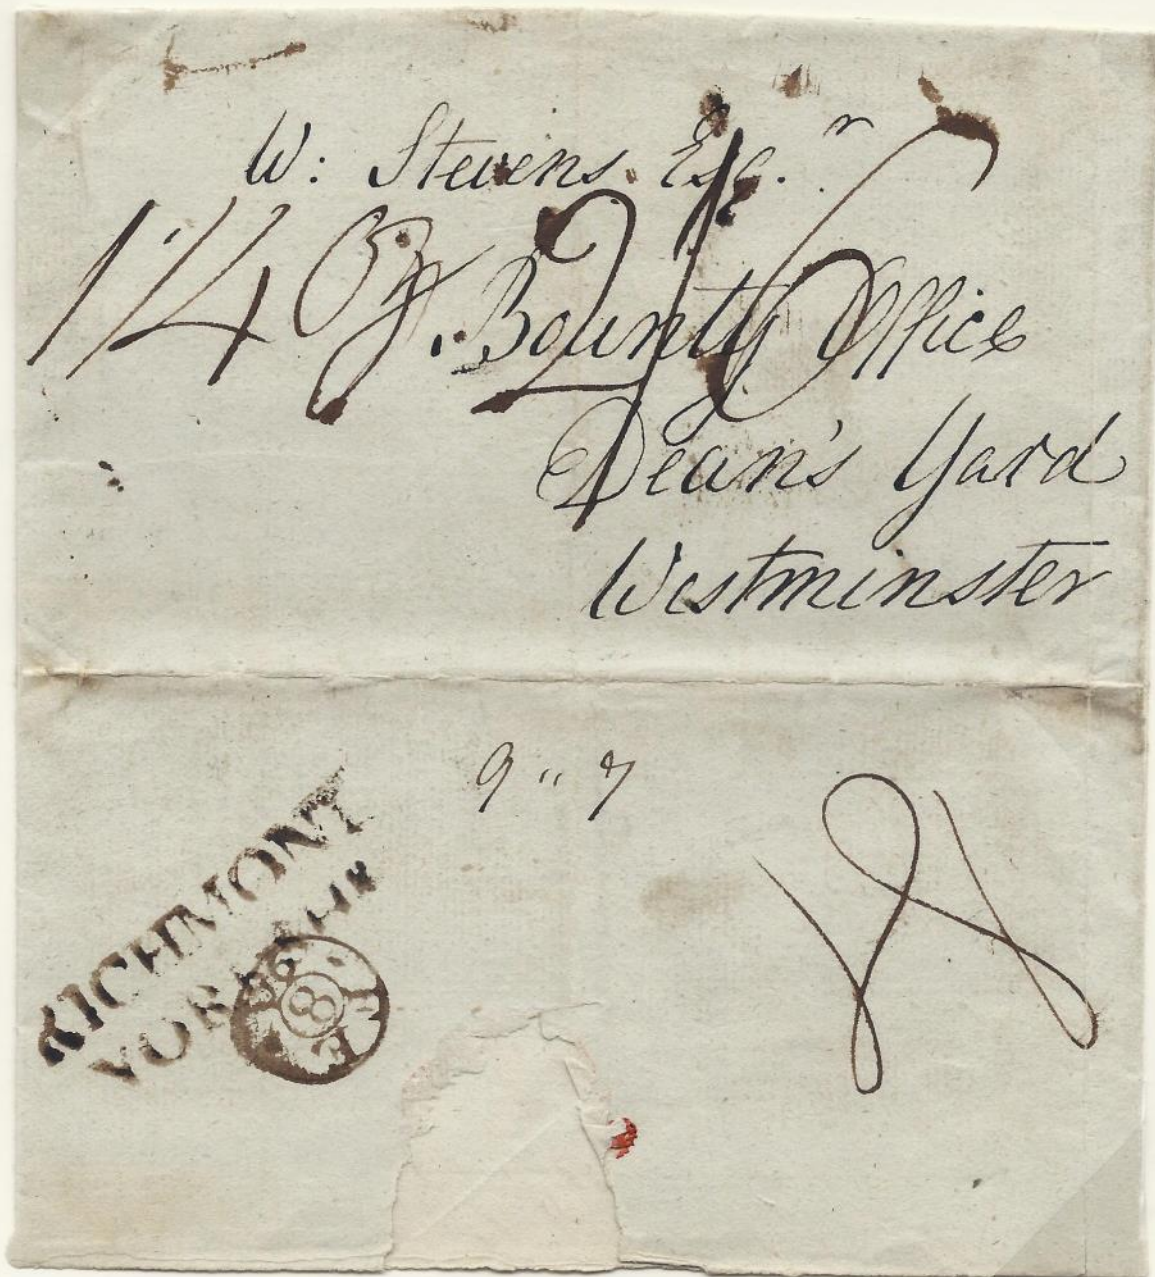 W: Stevens. Esq.r
1 1/4 Oz 2/6
Bounty Office
Dean's Yard
Westminster
9 " 7
RICHMONT
YORKSHIR
FE
8
96